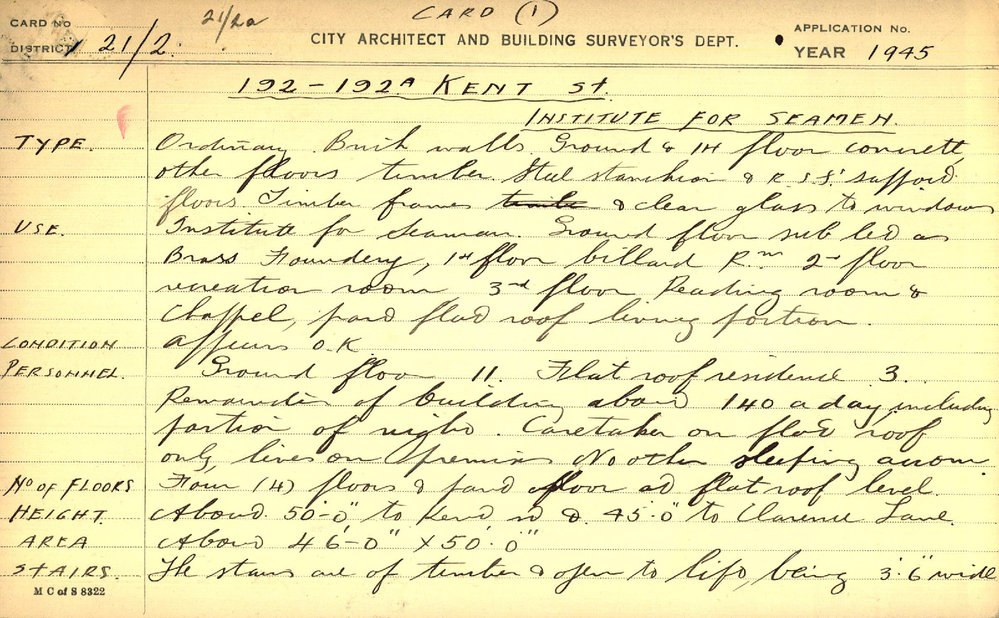 CARD (1)
CARD No
DISTRICT 21/2. 21/2a
CITY ARCHITECT AND BUILDING SURVEYOR'S DEPT.
APPLICATION No.
YEAR 1945
192-192A KENT St.
INSTITUTE FOR SEAMEN.
TYPE. Ordinary Brick walls. Ground & 1st floor concrete,
other floors timber. Steel stanchion & R.S.J's support
floors. Timber frames & clear glass to windows
USE. Institute for Seaman. Ground floor sub led as
Brass Foundery, 1st floor billard Rm 2nd floor
recreation room 3rd floor Reading room &
Chappel, part flat roof living portion.
CONDITION Appears O.K
PERSONNEL. Ground floor 11. Flat roof residence 3.
Remainder of building about 140 a day, including
portion of night. Caretaker on flat roof
only, lives on premises No other sleeping accom
No OF FLOORS Four (4) floors & part floor at flat roof level.
HEIGHT. About 50'-0" to Kent, & 45'-0" to Clarence Lane.
AREA About 46'-0" x 50'-0"
STAIRS. The stairs are of timber & open to lift, being 3'.6" wide
M C of S 8322